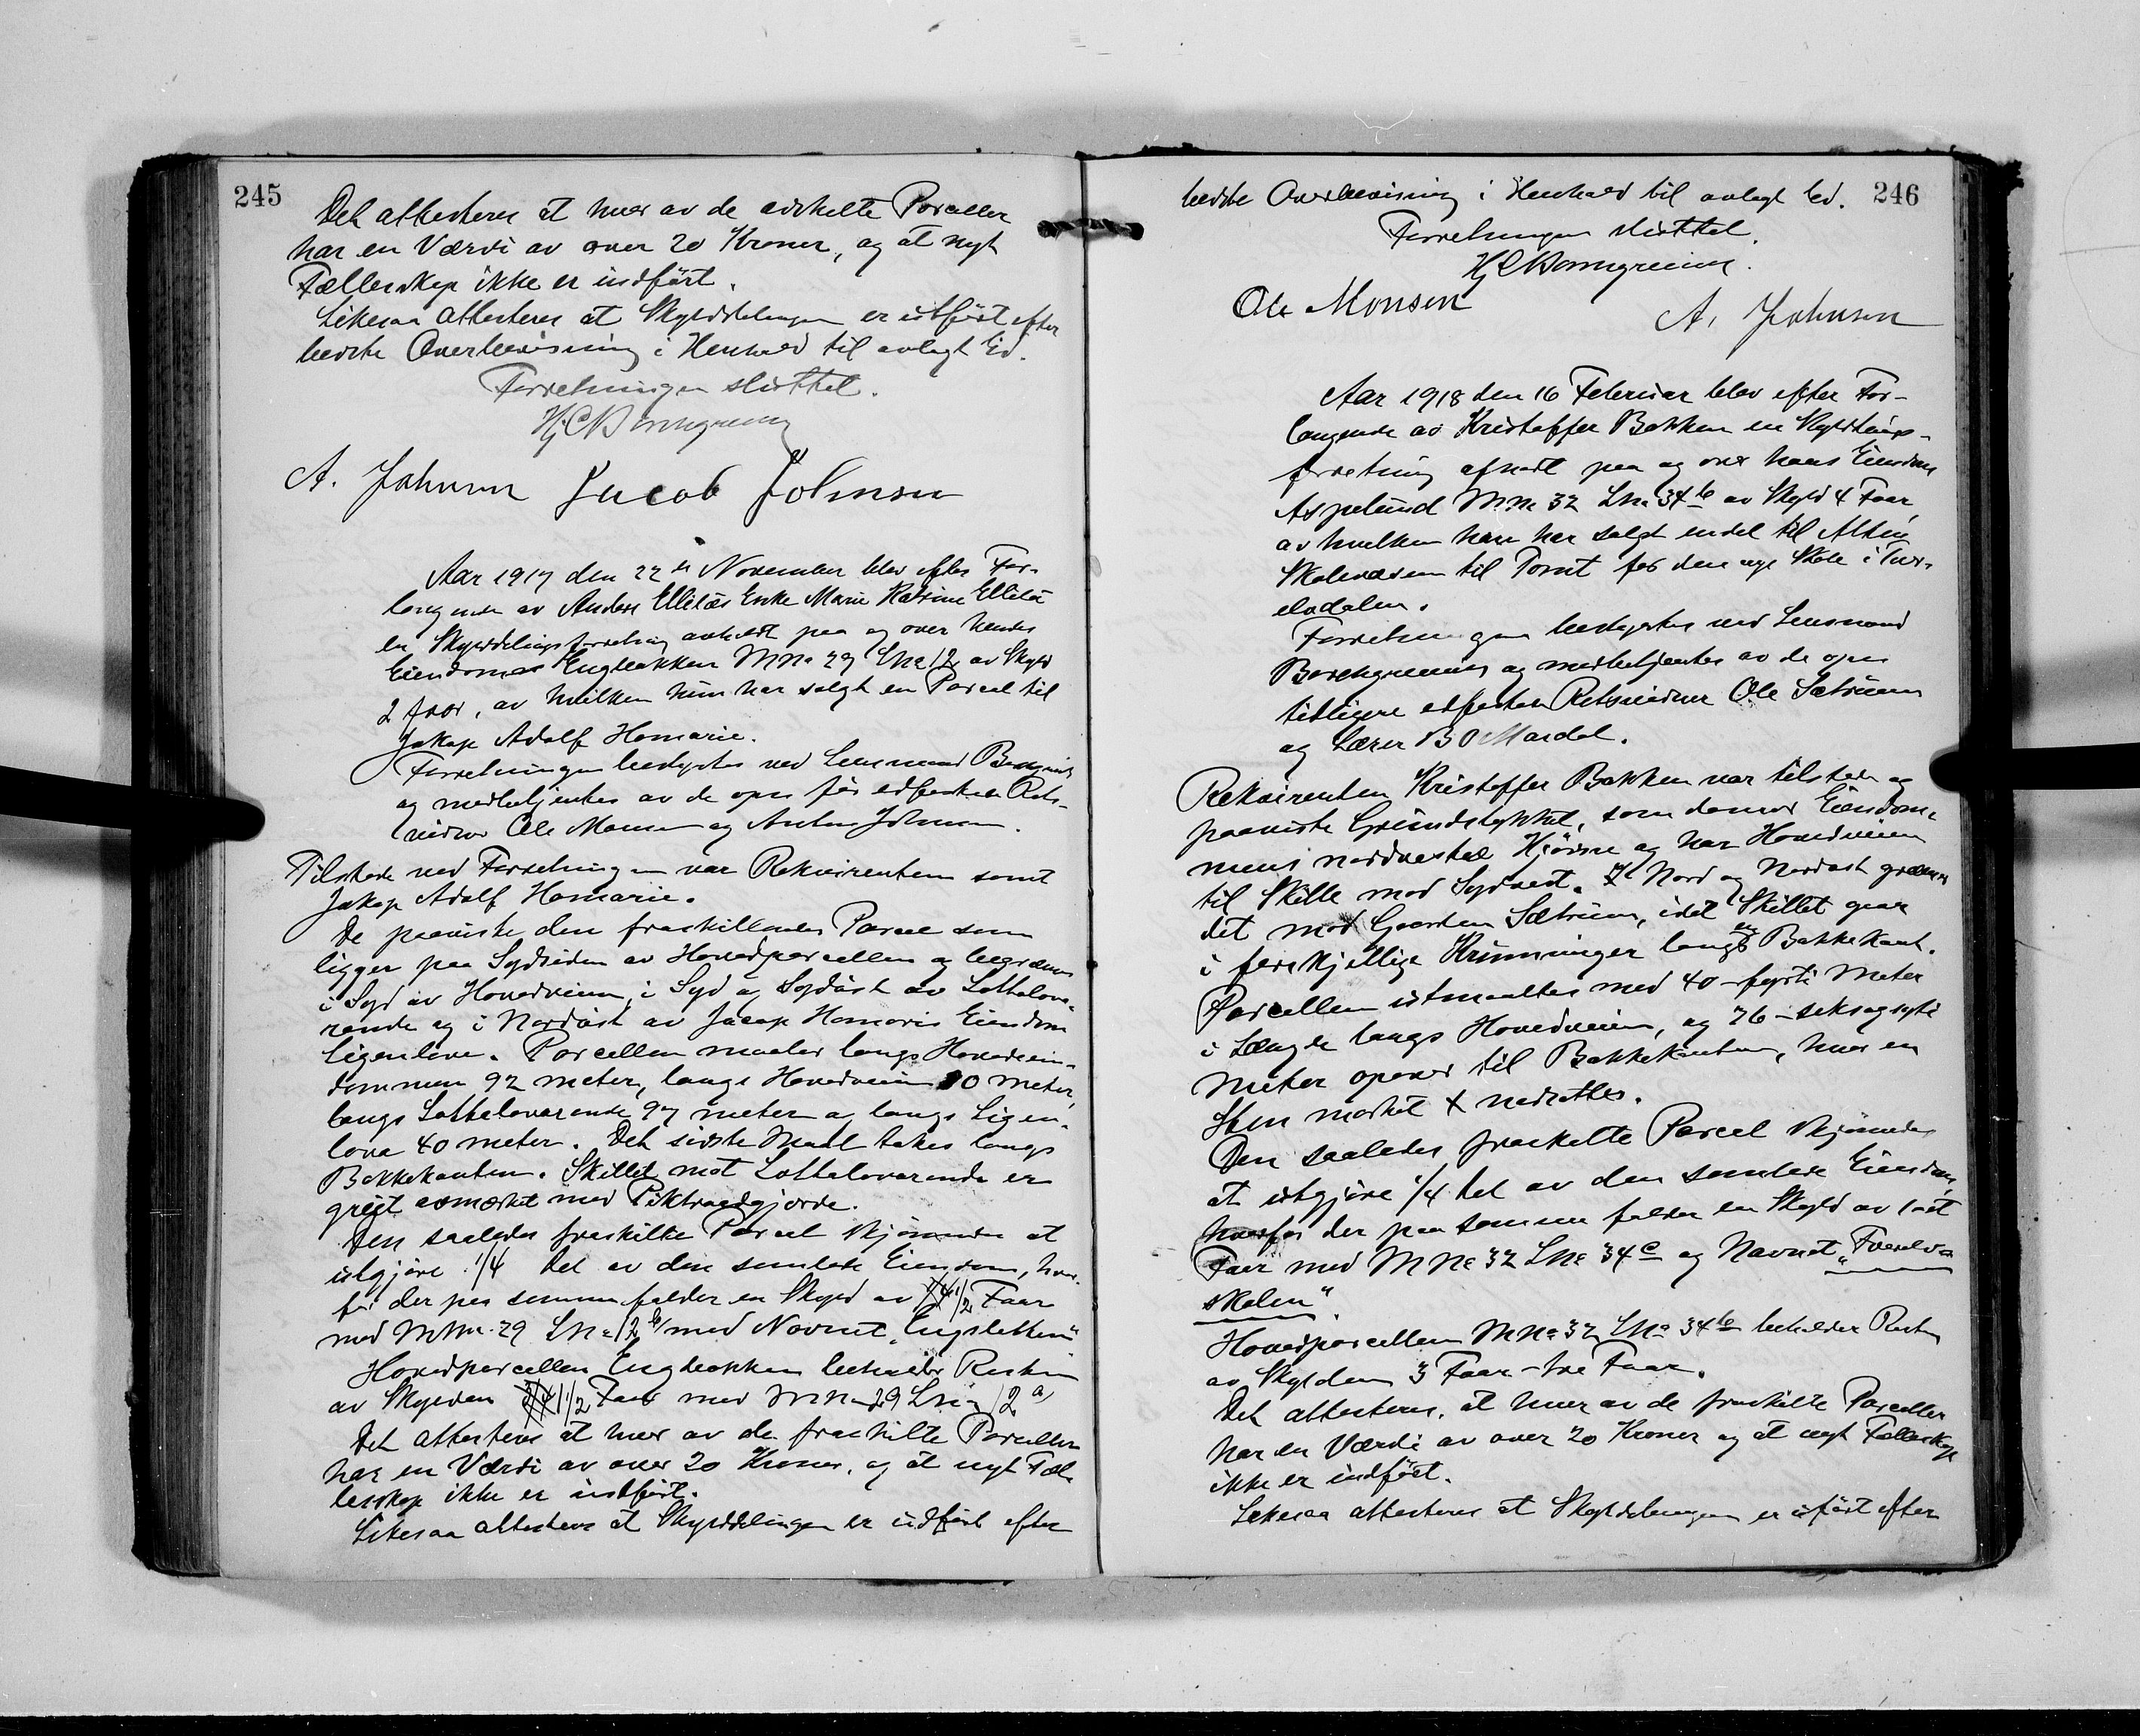 245
Det attesteres at hver av de avskelte Parceller
har en Værdi av over 20 Kroner, og at nyt
Fællerskap ikke er indført.
Likesaa attesteres at Skylddelingen er utført efter
bedste Overbevisning i Henhold til avlagt Ed.
Forretningen sluttet.
A. Johnsen Jacob Johnsen
Aar 1917 den 22de November blev efter For-
langende av Anders Ellilæs Enke Marie Katrine Ellilä
en Skylddelingsforretning avholdt paa og over hendes
Eiendom Engbakken M No 29 L No 12 av Skyld
2 Øer, av hvilken hun har solgt en Parcel til
Jakop Adolf Hemarie.
Forretningen bestyrtes ved Lensmand
og medbetjentes av de open før edfestede Rets-
vidner Ole Monsen og Anton Johnsen.
Tilstede ved Forretningen var Rekvirenten samt
Jakop Adolf Hemarie.
De paaviste den fraskillende Parcel som
ligger paa Sydsiden av Hovedparcellen og begrænses
i Syd av Hovedveien, i Syd og Sydöst av Lottelova-
rande og i Nordöst av Jacop Hemaris Eiendom
Ligenlova. Parcellen maaler langs Hovedeien-
dommen 92 meter, langs Hovedveien 80 meter,
langs Lottelovarande 97 meter og langs Ligen-
lova 40 meter. Det sidste Maal takes langs
Bakkekanten. Skillet mot Lottelovarande er
greit avmærket med Piktraadgjærde.
Den saaledes fraskilte Parcel skjønnedes at
utgjøre 1/4 Del av den samlede Eiendom, hvor-
for der paa samme falder en Skyld av 1/2 Øer
med M No 29 L No 12 b med Navnet "Engsletten"
Hovedparcellen Engbakken beholder Resten
av Skylden 1 1/2 Øer med M No 29 L No 12 a
Det attesteres at hver av de fraskilte Parceller
har en Værdi av over 20 Kroner, og at nyt Fæl-
lerskap ikke er indført.
Likesaa attesteres at Skylddelingen er udført efter
246
bedste Overbevisning i Henhold til avlagt Ed.
Forretningen sluttet.
Ole Monsen
A. Johnsen
Aar 1918 den 16 Februar blev efter For-
langende av Kristoffer Bakken en Skylddelings-
forretning afholdt paa og over hans Eiendom
Aspelund M No 32 L No 34 b av Skyld 4 Øer,
av hvilken han har solgt endel til Alten
Skolevæsen til Tomt for den nye Skole i Tver-
elvdalen.
Forretningen bestyrtes ved Lensmand
og medbetjentes av de open
tidligere edfestede Retsvidner Ole Sætrum
og Lærer B O Mardal.
Rekvirenten Kristoffer Bakken var tilstede og
paaviste Grundstykket, som danner Eiendom-
mens nordvestre Hjørne og har Hovedveien
til Skille mod Sydvest. I Nord og Nordöst grænser
det mod Gaarden Sætrum, idet Skillet gaar
i forskjellige Krumninger langs en Bakkekant.
Parcellen utmaaltes med 40 - fyrti Meter
i Længde langs Hovedveien, og 76 - seksogsyti
Meter opover til Bakkekanten, hvor en
Sten merket X nedsattes.
Den saaledes fraskelte Parcel skjønnedes
at utgjøre 1/4 Del av den samlede Eiendom,
hvorfor der paa samme falder en Skyld av 1 et
Øer med M No 32 L No 34 c og Navnet "Tverelv-
skolen".
Hovedparcellen M No 32 L No 34 b beholder Resten
av Skylden 3 Øer - tre Øer.
Det attesteres, at hver av de fraskilte Parceller
har en Værdi av over 20 Kroner og at nyt Fællerskap
ikke er indført.
Likesaa attesteres at Skylddelingen er uført efter